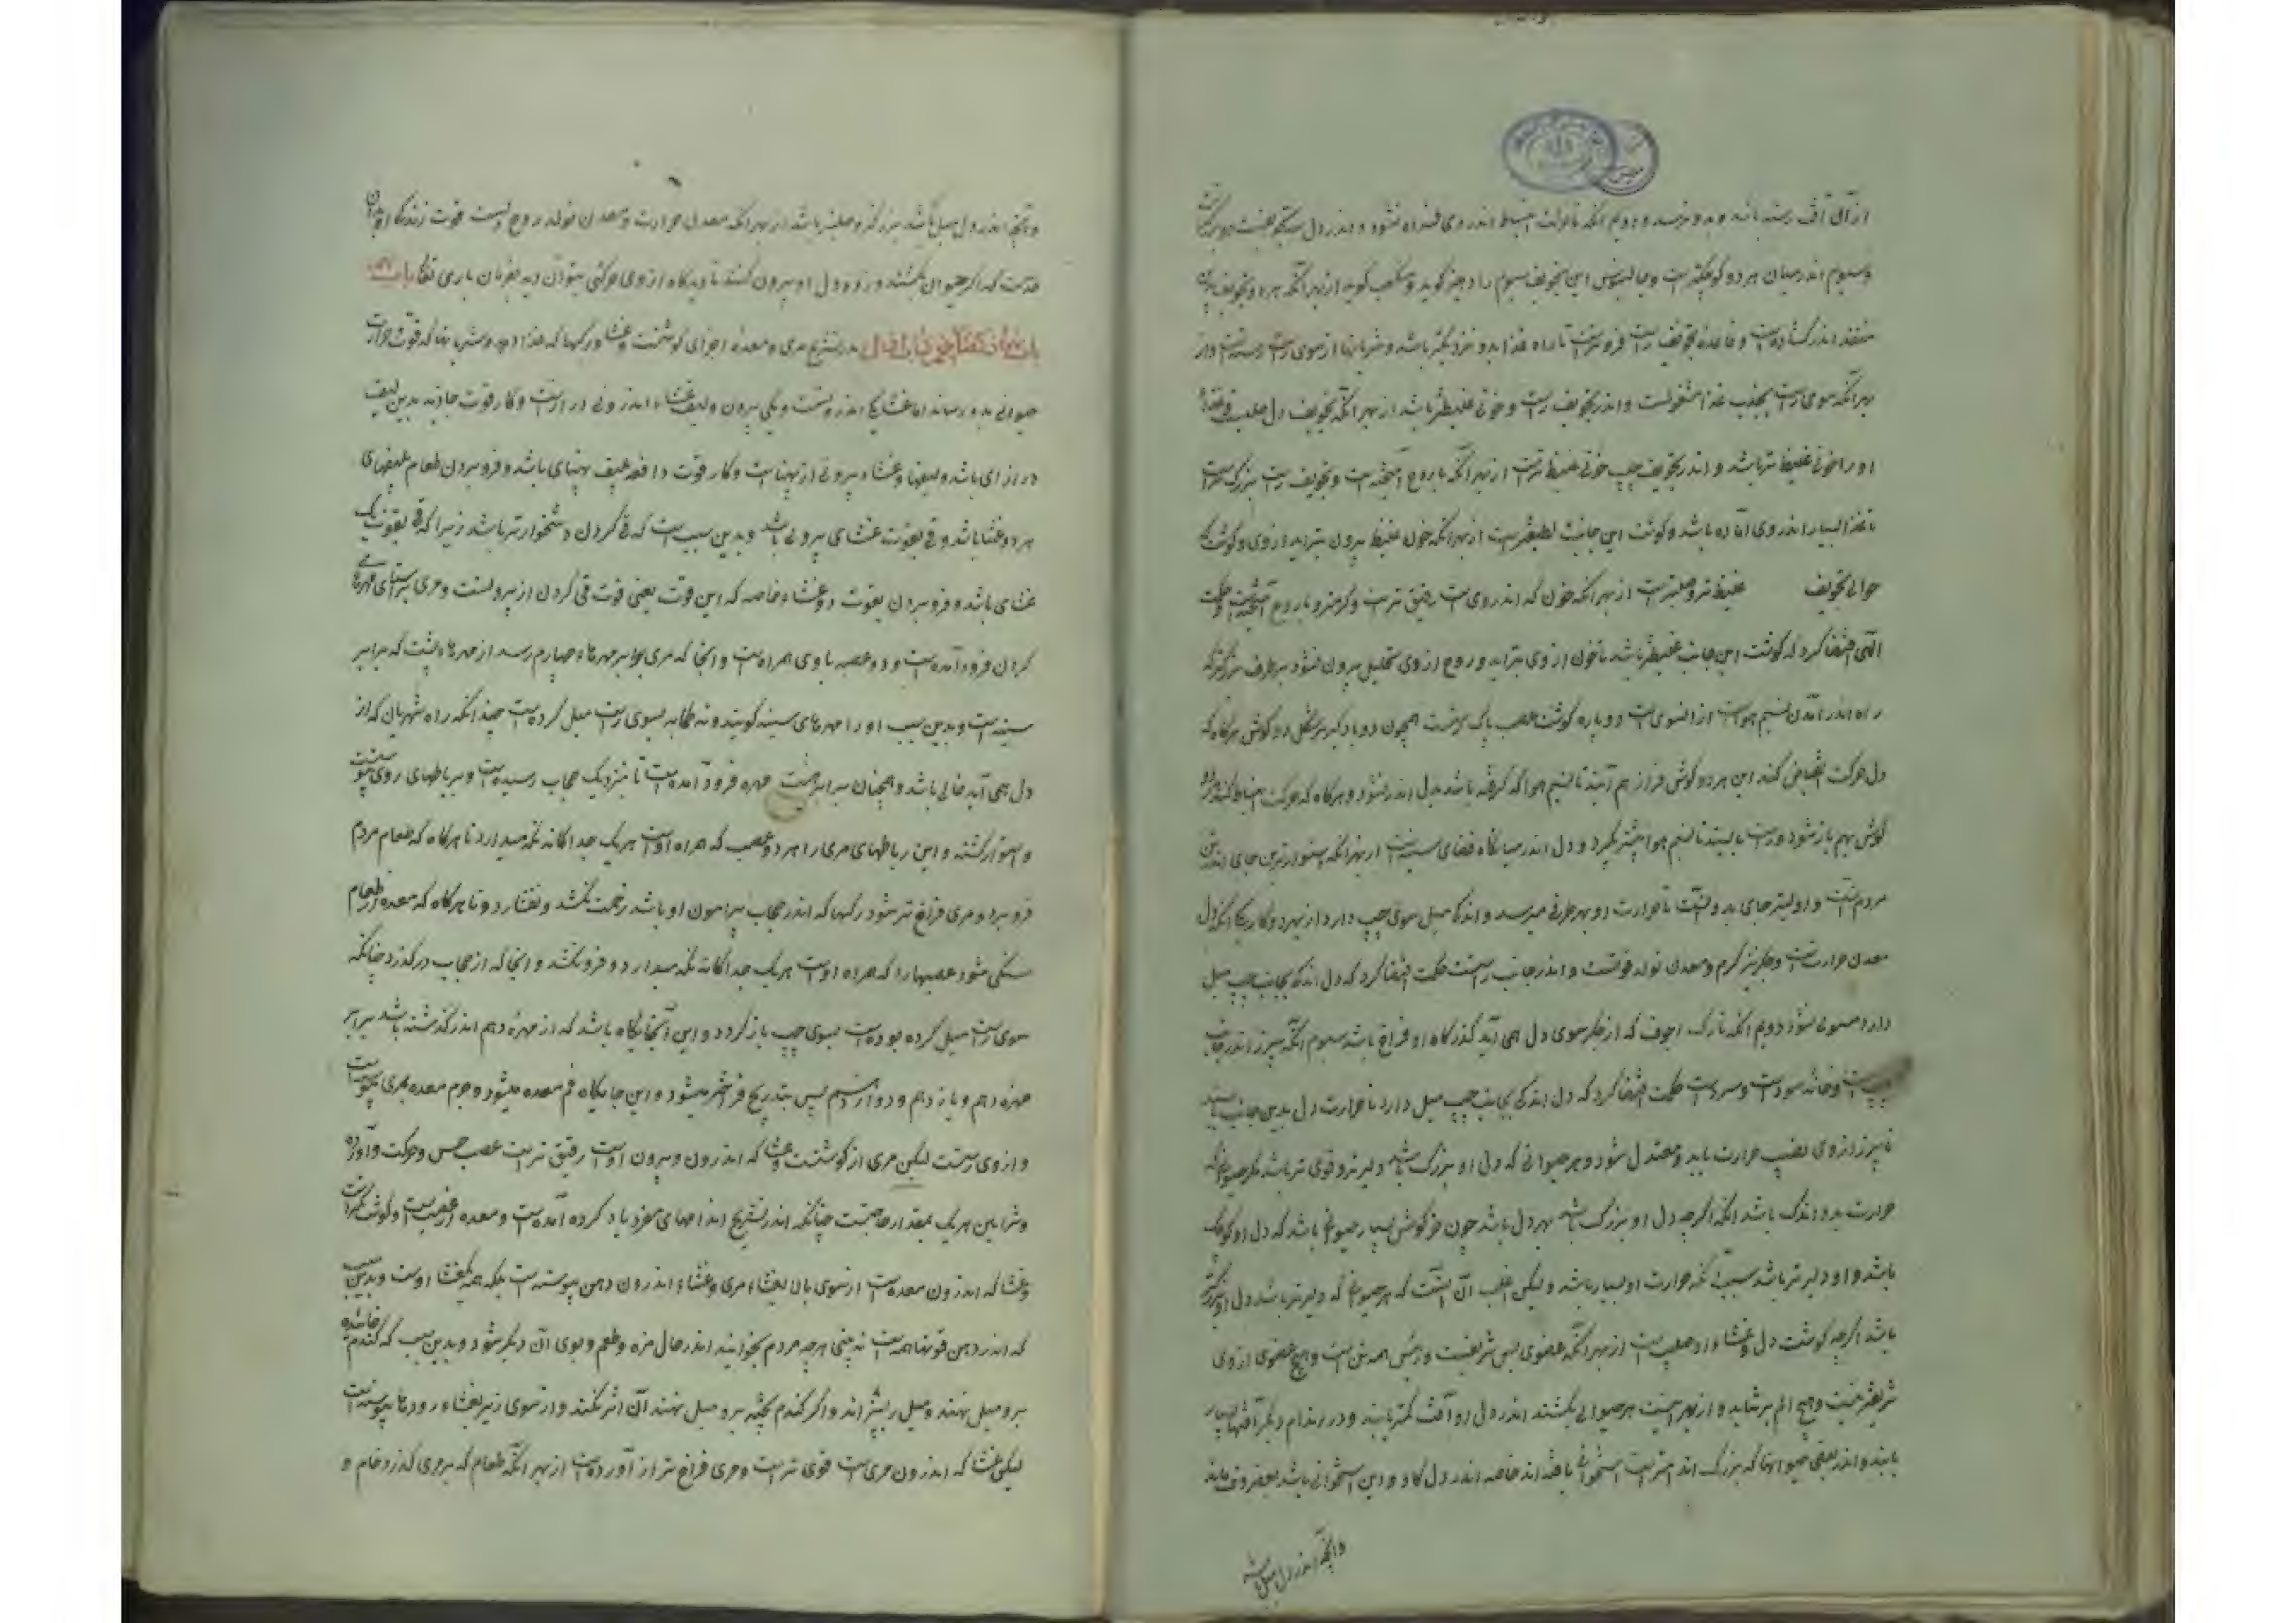 از آن آفت رسته باشد و بدو نرسد و دویم آنکه تا بوقت انبساط اندر وی فشرده نشود و اندر دل سه تجویفست دو بزرگست
و سیوم اندر میان هر دو کوچکترست و جالینوس این تجویف سیوم را دهلیز گوید و منصف گوید از بهر آنکه هر دو تجویف
منفذ اندر گشادست و قاعده تجویف راست فروتر است تا راه غذا بدو نزدیکتر باشد و شریانها از سوی راست رسته است و از
بهر آنکه سوی راست بجذب غذا مشغولست و اندر تجویف راست خونی غلیظتر باشد از بهر آنکه تجویف دل صلب
او را خونی غلیظ تر باشد و اندر تجویف چپ خونی غلیظ ترست از بهر آنکه با روح آمیخته است و تجویف راست بزرگ ترست
تا غذا بسیار اندر وی آماده باشد و گوشت این جانب لطیفترست از بهر آنکه خون غلیظ بیرون نتراید از وی و گوشت
حوالی تجویف غلیظ تر و صلبترست از بهر آنکه خون که اندر وی است رقیق ترست و گرمتر و با روح آمیخته است و حکمت
الهی اقتضا کرد که گوشت این جانب غلیظتر باشد تا خون از وی نتراید و روح از وی بتحلیل بیرون نشود بر طرف بزرگتر که
راه اندر آمدن نسیم هواست از آنسوی است دو پاره گوشت عصب ناک برست همچون دو بادگیر بر شکل دو گوش هرگاه که
دل حرکت انقباض کند این هر دو گوش فراز هم آیند تا نسیم هوا که گرفته باشد بدل اندر شود و هرگاه که حرکت انبساط کند هر دو
گوش بهم باز شود و راست بایستد تا نسیم هوا بیشتر گیرد و دل اندر میانگاه فضای سینه است از بهر آنکه استوارترین جای اندر تن
مردم اینست و اولیتر جای بدو اینست تا حرارت او بهر طرفی میرسد و اندکی میل سوی چپ دارد از بهر دو کار یکی آنکه دل
معدن حرارتست و جگر نیز گرم و معدن تولد خونست و اندر جانب راستست حکمت اقتضا کرد که دل اندکی بجانب چپ میل
دارد دویم آنکه تا رگ اجوف که از جگر سوی دل همی آید گذرگاه او فراخ باشد سیوم آنکه سپرز اندر جانب
چپ است و خانه سوداست و سردست حکمت اقتضا کرد که دل اندکی بجانب چپ میل دارد تا حرارت دل بدین جانب باشد
تا سپرز از وی نصیب حرارت یابد و معتدل شود و هر حیوانی که دل او بزرگ باشد دلیرتر و قوی تر باشد مگر حیوانی که
حرارت بدو اندک باشد آنکه اگر چه دل او بزرگ باشد بد دل باشد چون خرگوش و بسیار حیوان باشد که دل او کوچک
باشد و او دلیرتر باشد سبب آنکه حرارت او بسیار باشد و لیکن اغلب آن اینست که هر حیوان که دلیرتر باشد دل او بزرگتر
باشد اگر چه گوشت دل و غشاء او صلب است از بهر آنکه عضوی بس شریفست و رئیس همه تن است و هیچ عضوی از وی
شریفتر نیست و هیچ الم بر نتابد و از بهر اینست هر حیوانی بکشند اندر دل او آفت کمتر یابند و در اندام دیگر آفتها بسیار
یابند و اندر بعضی حیوانها که بزرگ اند استریست استخوانی یافته اند خاصه اندر دل گاو و این استخوانی باشد بغضروف ماند
و آنچه اندر دل پیل باشد
۶
و آنچه اندر دل پیل باشد بزرگتر و صلبتر باشد از بهر آنکه معدن حرارت و معدن تولد روح است قوت زندگانی او بدان
حدست که اگر حیوان بکشند و زود دل او بیرون کنند تا دیرگاه از وی حرکتی بتوان دید بفرمان باری تعالی باب
تشریح مری و معده اجزای گوشتست و غشا و رگها که غذا دهد و شریانها که قوت حرارت
حیوانی بدو رساند اما غشا یکی اندرونست و یکی بیرون و لیف غشاء اندرونی درازست و کار قوت جاذبه بدین لیف
درازای باشد و لیفهای غشاء بیرونی از پهناست و کار قوت دافعه بلیف پهنای باشد و فرو بردن طعام بلیفهای
هر دو غشا باشد و قی بقوت غشای بیرونی باشد و بدین سبب است که قی کردن دشخوارتر باشد زیرا که قی بقوت یک
غشای باشد و فرو بردن بقوت دو غشاء خاصه که این قوت یعنی قوت قی کردن از بیرونست و مری براستای مهرهای
گردن فرود آمده است و دو عصبه با وی همراه است و آنجا که مری برابر مهره چهارم رسد از مهرهاء پشت که برابر
سینه است و بدین سبب او را مهرهای سینه گویند و نه ظاهر بسوی راست میل کرده است چندانکه راه شریان که از
دل همی آید خالی باشد و همچنان برابر هشت مهره فرود آمده است تا نزدیک حجاب رسیده است و برباطهای روی پیوست
و استوار گشته و این رباطهای مری را هر دو عصب که همراه اوست هر یک جداگانه نگه میدارد تا هرگاه که طعام مردم
فرو برد و مری فراخ تر شود رگها که اندر حجاب پیرامون او باشد زحمت نکشد و نفشارد و تا هرگاه که معده از طعام
سنگی شود عصبها را که همراه اوست هر یک جداگانه نگه میدارد و فرو نکشد و آنجا که از حجاب درگذرد چنانکه
سوی راست میل کرده بودست بسوی چپ باز گردد و این آنجایگاه باشد که از مهره دهم اندر گذشته باشد برابر
مهره دهم و یازدهم و دوازدهم پس بتدریج فراختر میشود و این جایگاه فم معده میشود و جرم معده بمری پیوسته است
و از وی رستست لیکن مری از گوشتست و غشا که اندرون و بیرون اوست رقیق ترست عصب حس و حرکت و آورده
و شرایین هر یک بمقدار حاجتست چنانکه اندر تشریح اندامهای مفرد یاد کرده آمده است و معده از عصب است و گوشت
و غشا که اندرون معده است از سوی بالا بغشاء مری و غشاء اندرون دهن پیوسته است بلکه همه یکغشاء اوست و بدین سبب
که اندر دهن قوتها همه است نه بینی هر چه مردم بخوایند اندر حال مزه و طعم و بوی آن دیگر شود و بدین سبب که گندم خائیده
بر دمل نهند دمل را بپزاند و اگر گندم پخته بر دمل نهند آن اثر نکند و از سوی زیر بغشاء رودها پیوسته است
لیکن غشا که اندرون مری است قوی ترست و مری فراخ تر از آورده است از بهر آنکه طعام که بمری گذرد خام و